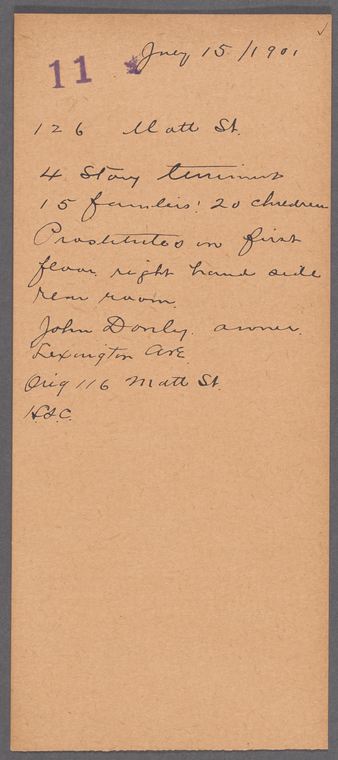 11
July 15/1901
126 Mott St.
4 Story tenement
15 families: 20 children
Prostitutes on first
floor, right hand side
rear room.
John Donly. owner.
Lexington Ave.
Orig 116 Mott St.